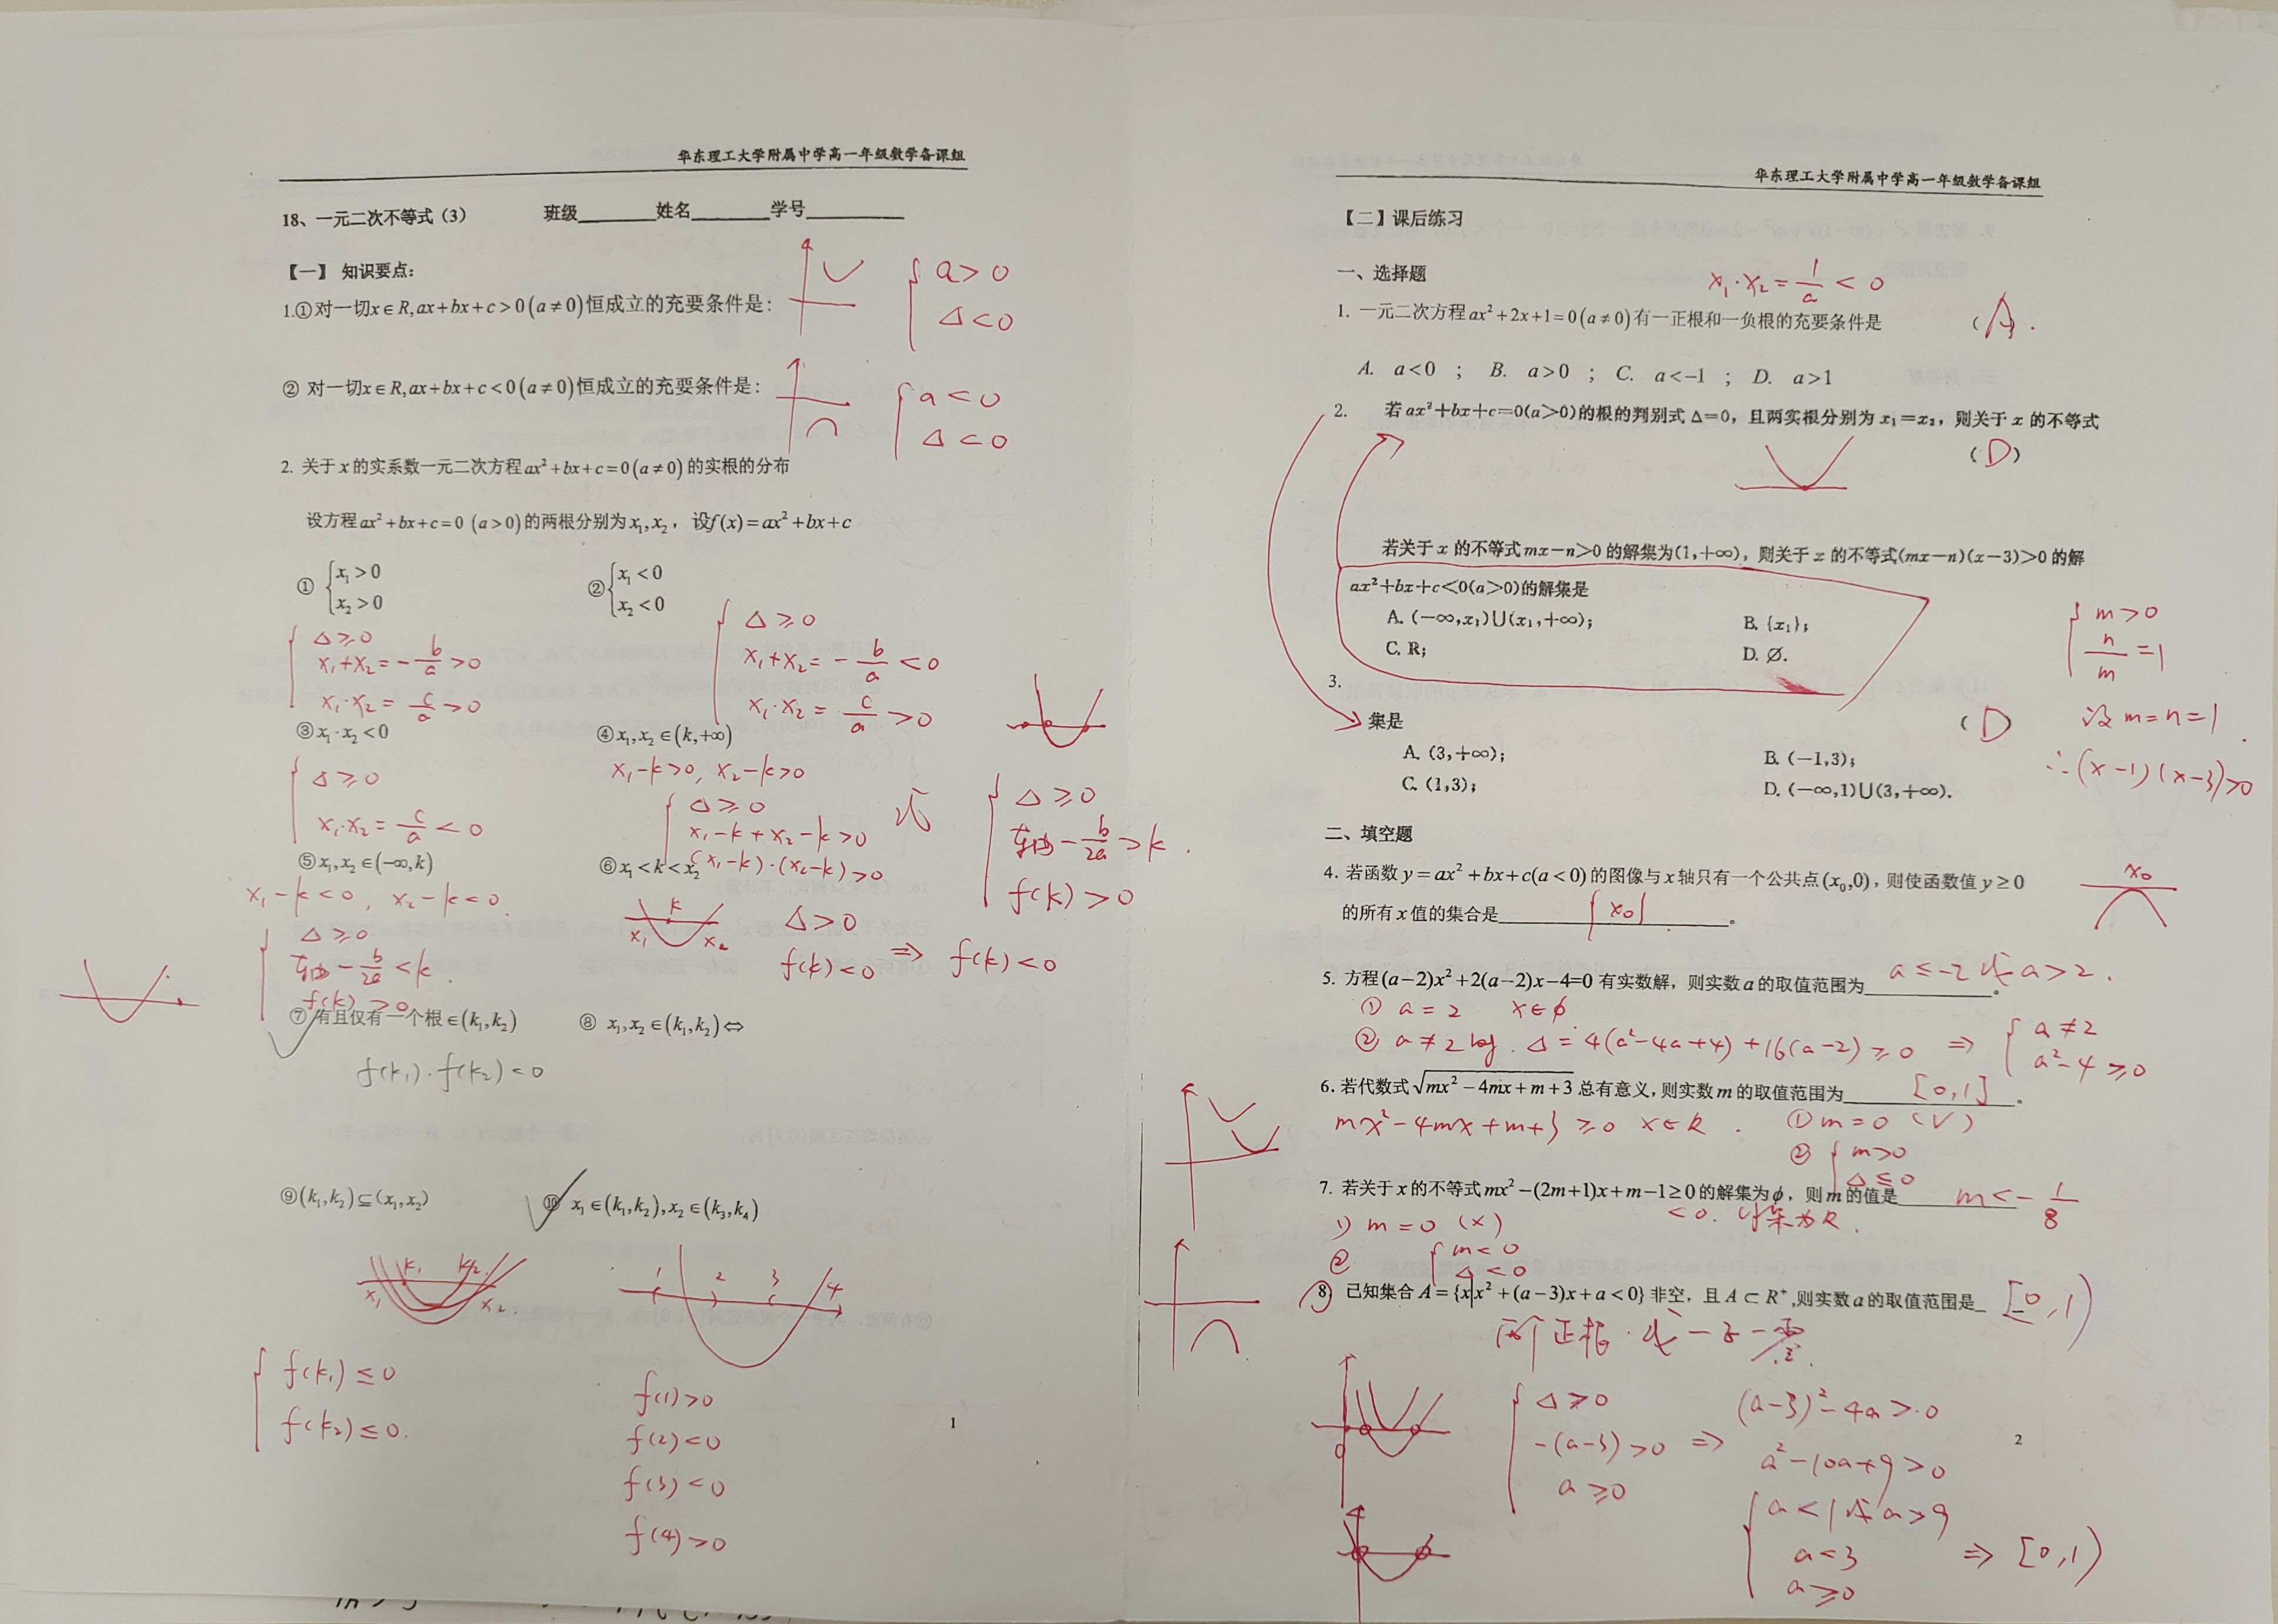 华东理工大学附属中学高一年级数学备课组
18、一元二次不等式（3） 班级________姓名________学号__________
【一】 知识要点：
1.①对一切x∈R,ax+bx+c>0(a≠0)恒成立的充要条件是：
{ a>0
Δ<0
② 对一切x∈R,ax+bx+c<0(a≠0)恒成立的充要条件是：
{ a<0
Δ<0
2. 关于x的实系数一元二次方程ax²+bx+c=0(a≠0)的实根的分布
设方程ax²+bx+c=0 (a>0)的两根分别为x₁,x₂， 设f(x)=ax²+bx+c
① { x₁>0
x₂>0
② { x₁<0
x₂<0
{ Δ≥0
x₁+x₂=-b/a>0
x₁·x₂=c/a>0
{ Δ≥0
x₁+x₂=-b/a<0
x₁·x₂=c/a>0
③x₁·x₂<0
④x₁,x₂∈(k,+∞)
{ Δ≥0
x₁·x₂=c/a<0
x₁-k>0, x₂-k>0
{ Δ≥0
x₁-k+x₂-k>0
(x₁-k)·(x₂-k)>0
或
{ Δ≥0
轴-b/2a>k.
f(k)>0
⑤x₁,x₂∈(-∞,k)
⑥x₁<k<x₂
x₁-k<0, x₂-k<0.
{ Δ≥0
轴-b/2a<k.
f(k)>0
k
x₁ x₂
Δ>0
f(k)<0 ⇒ f(k)<0
⑦有且仅有一个根∈(k₁,k₂)
⑧ x₁,x₂∈(k₁,k₂)⇔
f(k₁)·f(k₂)<0
⑨(k₁,k₂)⊆(x₁,x₂)
⑩ x₁∈(k₁,k₂),x₂∈(k₃,k₄)
k₁ k₂
x₁ x₂
1 2 3 4
{ f(k₁)≤0
f(k₂)≤0.
f(1)>0
f(2)<0
f(3)<0
f(4)>0
1
华东理工大学附属中学高一年级数学备课组
【二】课后练习
一、选择题
x₁·x₂=1/a<0
1. 一元二次方程ax²+2x+1=0(a≠0)有一正根和一负根的充要条件是 (A).
A. a<0 ; B. a>0 ; C. a<-1 ; D. a>1
2. 若ax²+bx+c=0(a>0)的根的判别式Δ=0，且两实根分别为x₁=x₂，则关于x的不等式
(D)
若关于x的不等式mx-n>0的解集为(1,+∞)，则关于x的不等式(mx-n)(x-3)>0的解
ax²+bx+c<0(a>0)的解集是
A. (-∞,x₁)∪(x₁,+∞)； B. {x₁}；
C. R； D. ∅.
{ m>0
n/m=1
设m=n=1.
∴(x-1)(x-3)>0
3.
集是 (D)
A. (3,+∞)； B. (-1,3)；
C. (1,3)； D. (-∞,1)∪(3,+∞).
二、填空题
4. 若函数y=ax²+bx+c(a<0)的图像与x轴只有一个公共点(x₀,0)，则使函数值y≥0
x₀
的所有x值的集合是____{x₀}____。
5. 方程(a-2)x²+2(a-2)x-4=0有实数解，则实数a的取值范围为 a≤-2或a>2.
① a=2 x∈∅
② a≠2时. Δ=4(a²-4a+4)+16(a-2)≥0 ⇒ { a≠2
a²-4≥0
6. 若代数式√(mx²-4mx+m+3)总有意义,则实数m的取值范围为 [0,1] 。
mx²-4mx+m+3≥0 x∈R. ①m=0 (√)
② { m>0
Δ≤0
7. 若关于x的不等式mx²-(2m+1)x+m-1≥0的解集为ϕ，则m的值是 m<-1/8
<0. 解集为R.
1) m=0 (×)
② { m<0
Δ<0
8) 已知集合A={x|x²+(a-3)x+a<0}非空，且A⊂R⁺,则实数a的取值范围是_ [0,1)
两个正根.或一正一零.
0
{ Δ>0
-(a-3)>0
a≥0
⇒ (a-3)²-4a>0
a²-10a+9>0
{ a<1或a>9
a<3
a≥0
⇒ [0,1)
2